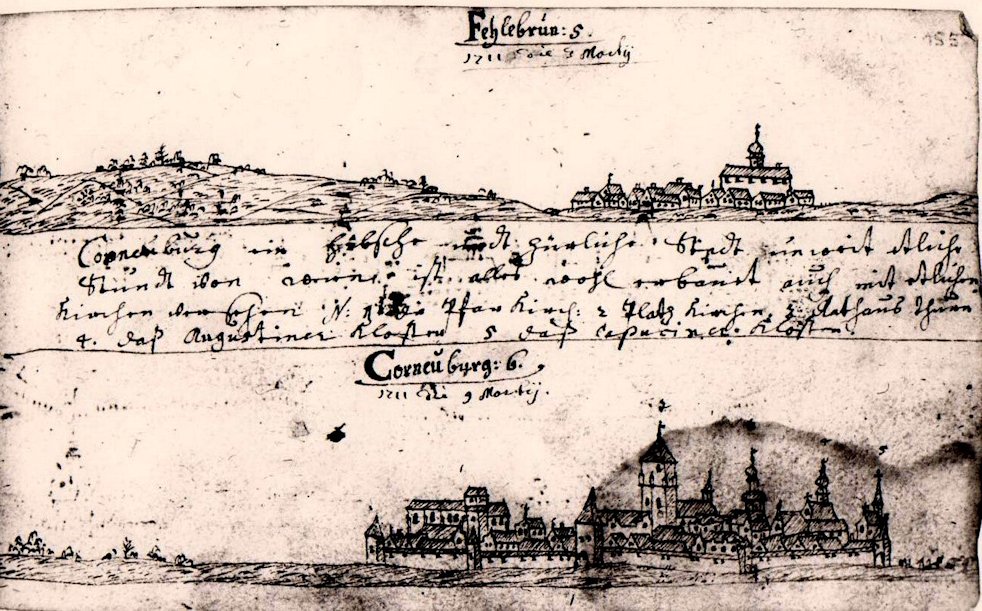 Fehlebrün: 5.
1711 die 3 Martij
155
Corneuburg ein hübsche undt zürliche Stadt unweit etliche
Stundt von ist alles wohl erbaut auch mit etlichen
Kirchen versehen N: 1 Pfar Kirch: 2 Platz Kirchen, 3: Rathaus Thurn
4. daß Augustiner Kloster 5 daß Capuciner Kloster
Corneuburg: 6.
1711 die 9 Martij.